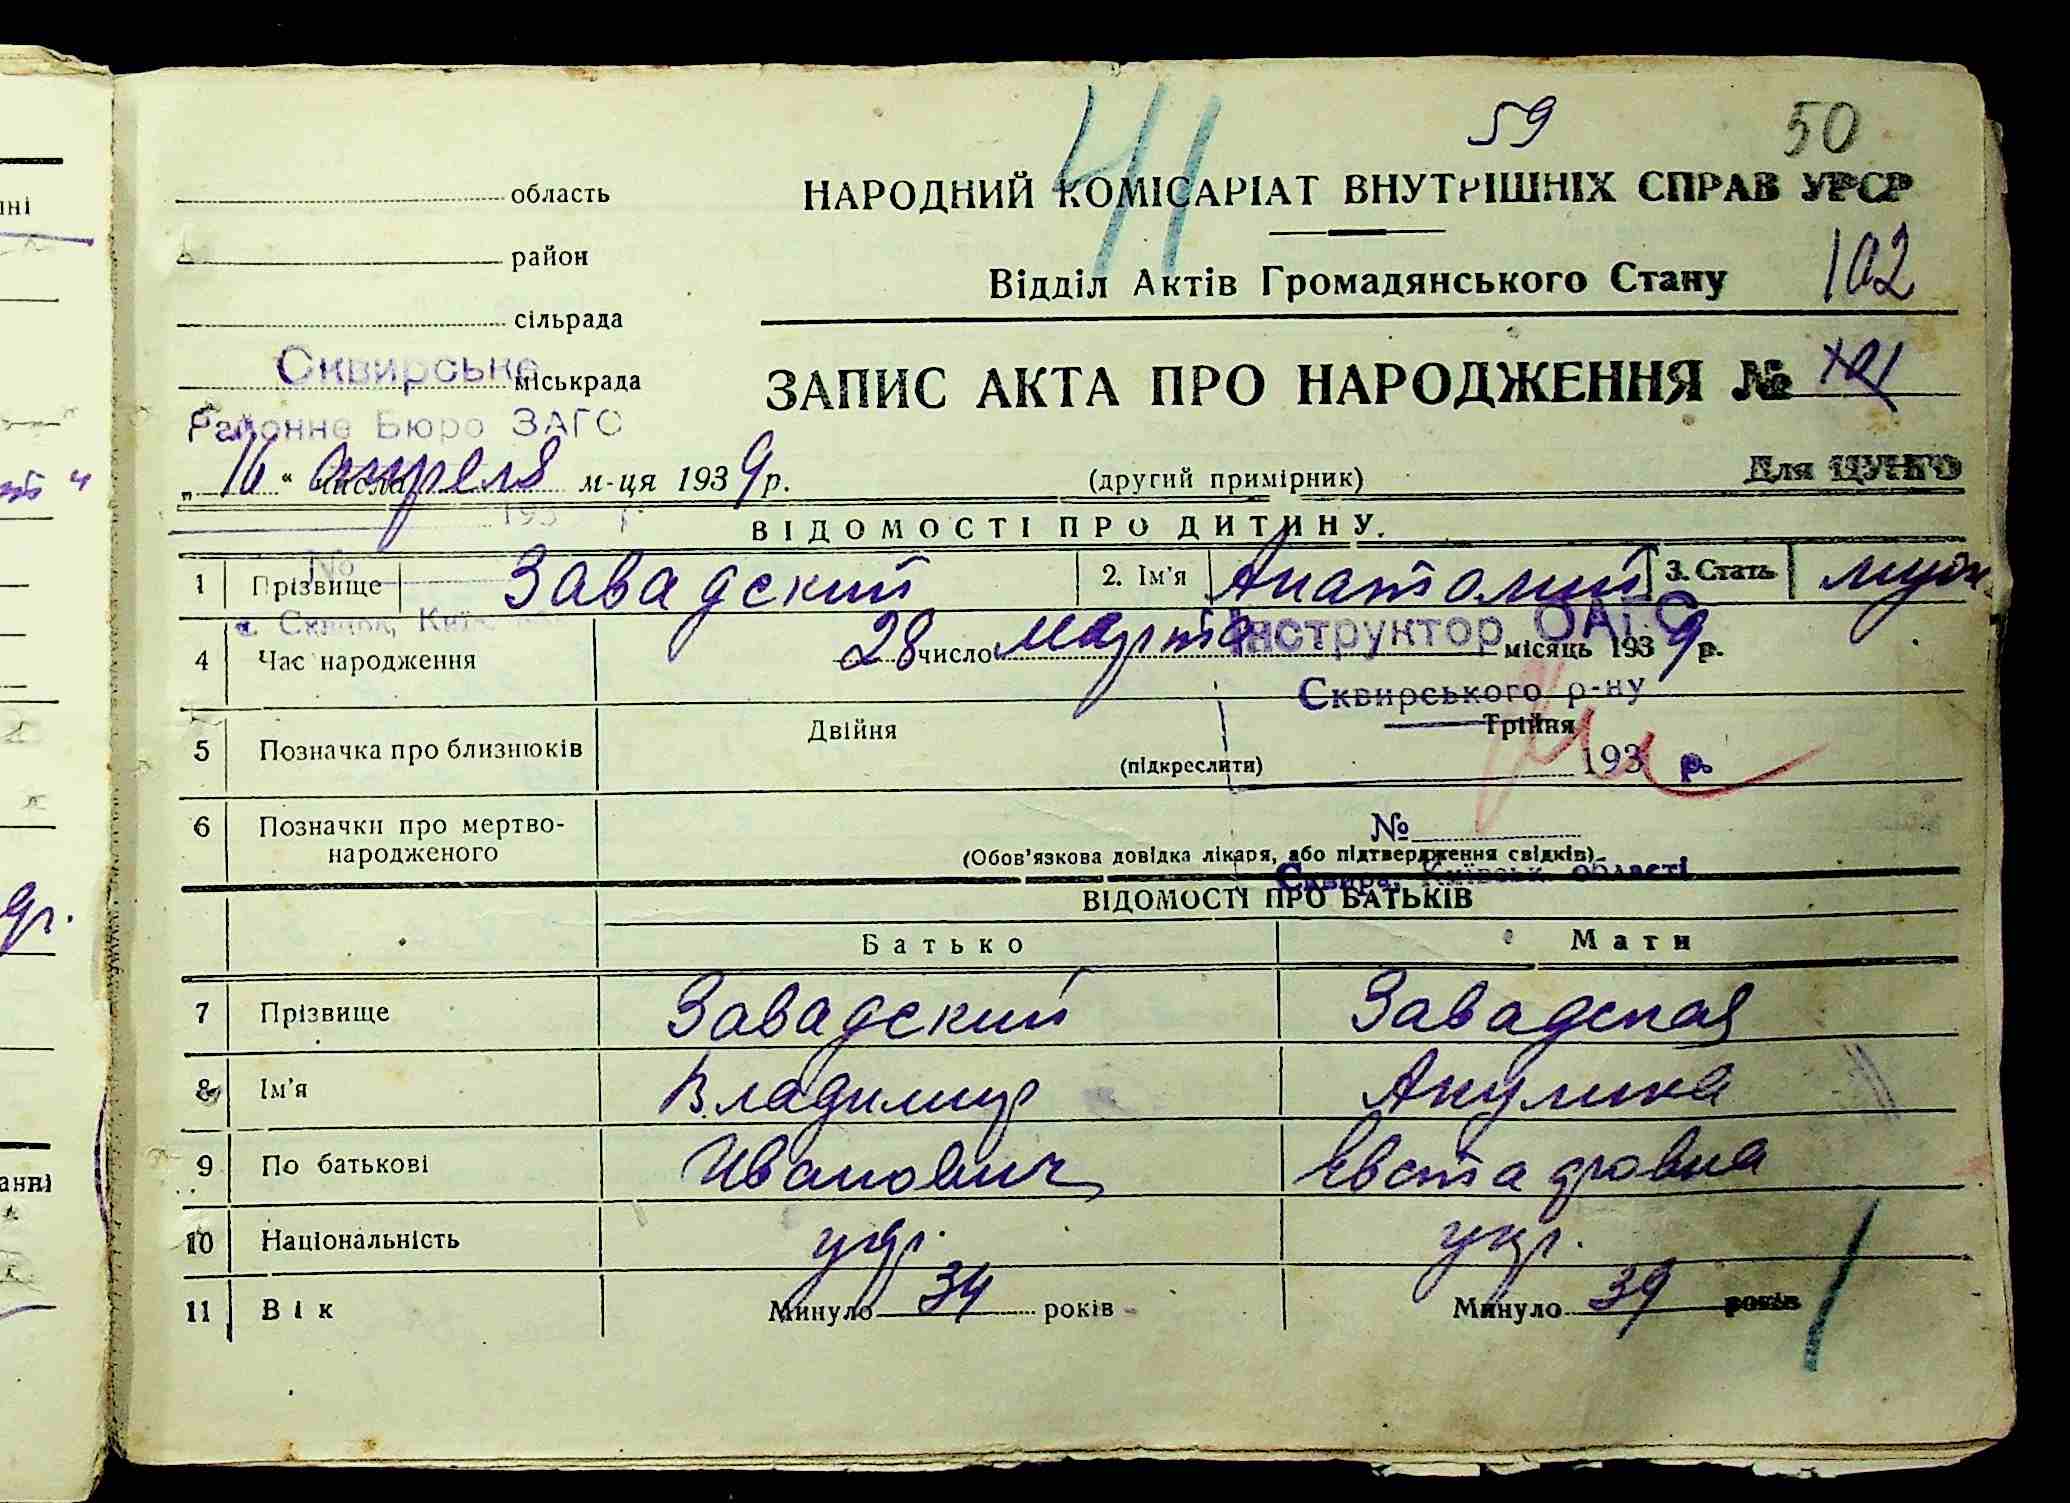 41 59 50
область
НАРОДНИЙ КОМІСАРІАТ ВНУТРІШНІХ СПРАВ УРСР
район
102
Відділ Актів Громадянського Стану
сільрада
Сквирське міськрада
ЗАПИС АКТА ПРО НАРОДЖЕННЯ № 101
Районне Бюро ЗАГС
„16“ числа апреля м-ця 1939 р.
(другий примірник)
Для ЦУНГО
193 р.
ВІДОМОСТІ ПРО ДИТИНУ.
№
1 Прізвище Завадский 2. Ім'я Анатолий 3. Стать муж
м. Сквира, Київ
Інструктор ОАГС
4 Час народження 28 число марта місяць 1939 р.
Сквирського р-ну
5 Позначка про близнюків Двійня Трійня
(підкреслити)
193 р.
6 Позначки про мертво-
народженого
№
(Обов'язкова довідка лікаря, або підтвердження свідків)
Сквира, Київськ. області
ВІДОМОСТІ ПРО БАТЬКІВ
Батько Мати
7 Прізвище Завадский Завадская
8 Ім'я Владимир Акулина
9 По батькові Иванович
10 Національність укр. укр.
11 Вік Минуло 34 років Минуло 39 років